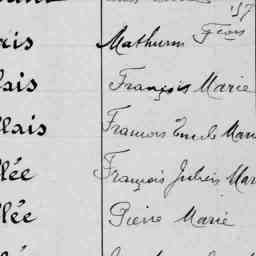 '57
ris Mathurin Fçois
ais François Marie
llais Francois Emile Mari
lée François Julien Mar
lée Pierre Marie